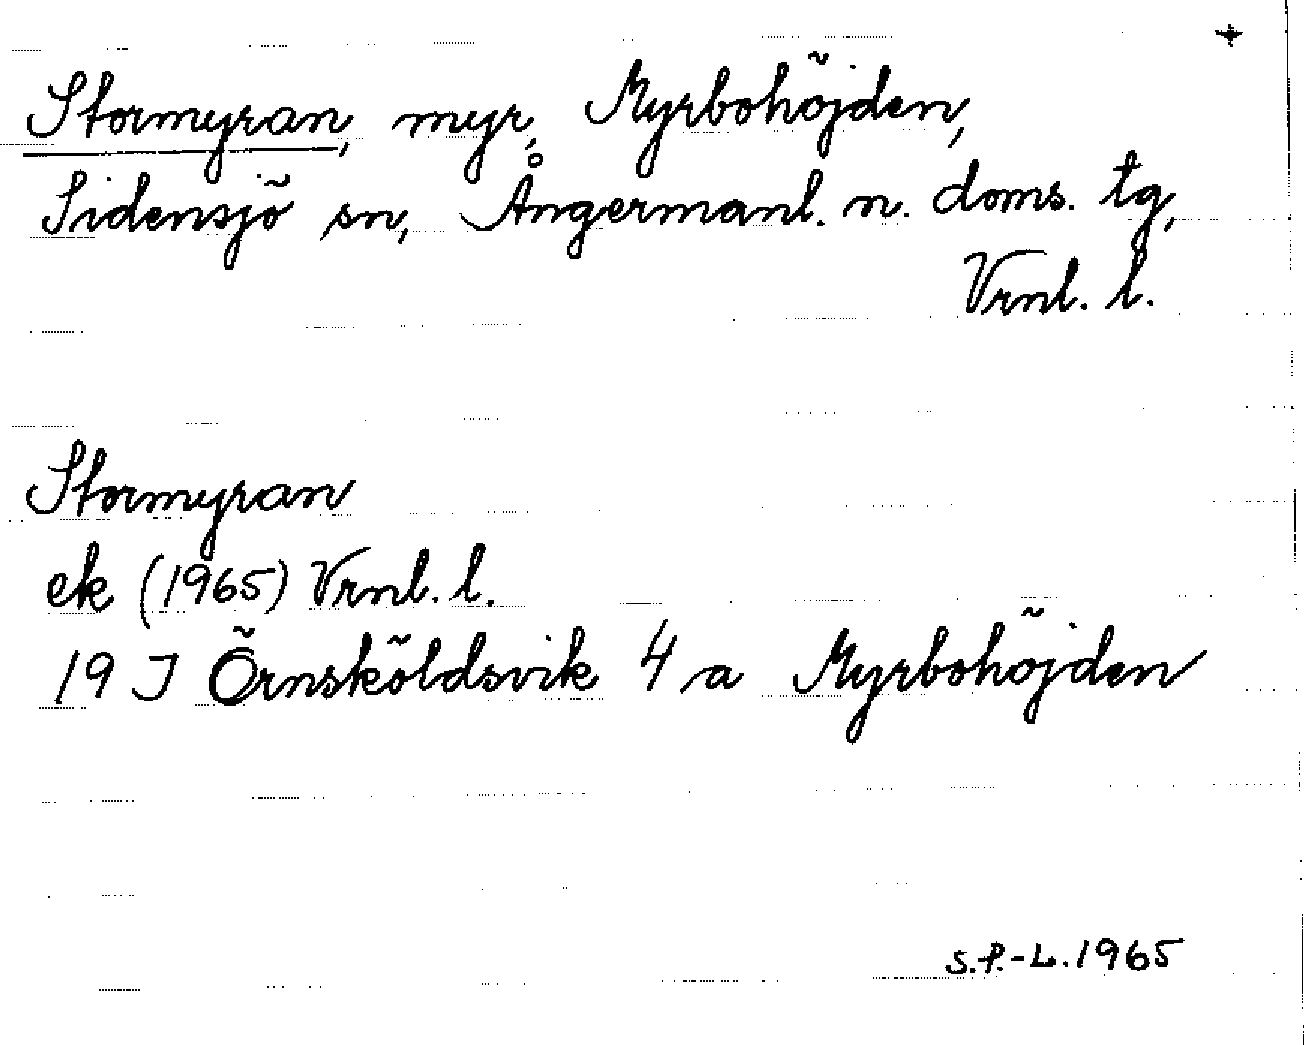 +
Stormyran, myr, Myrbohöjden,
Sidensjö sn, Ångermanl. n. doms. tg,
Vrnl. l.
Stormyran
ek (1965) Vrnl. l.
19 J Örnsköldsvik 4 a Myrbohöjden
S.P.-L. 1965